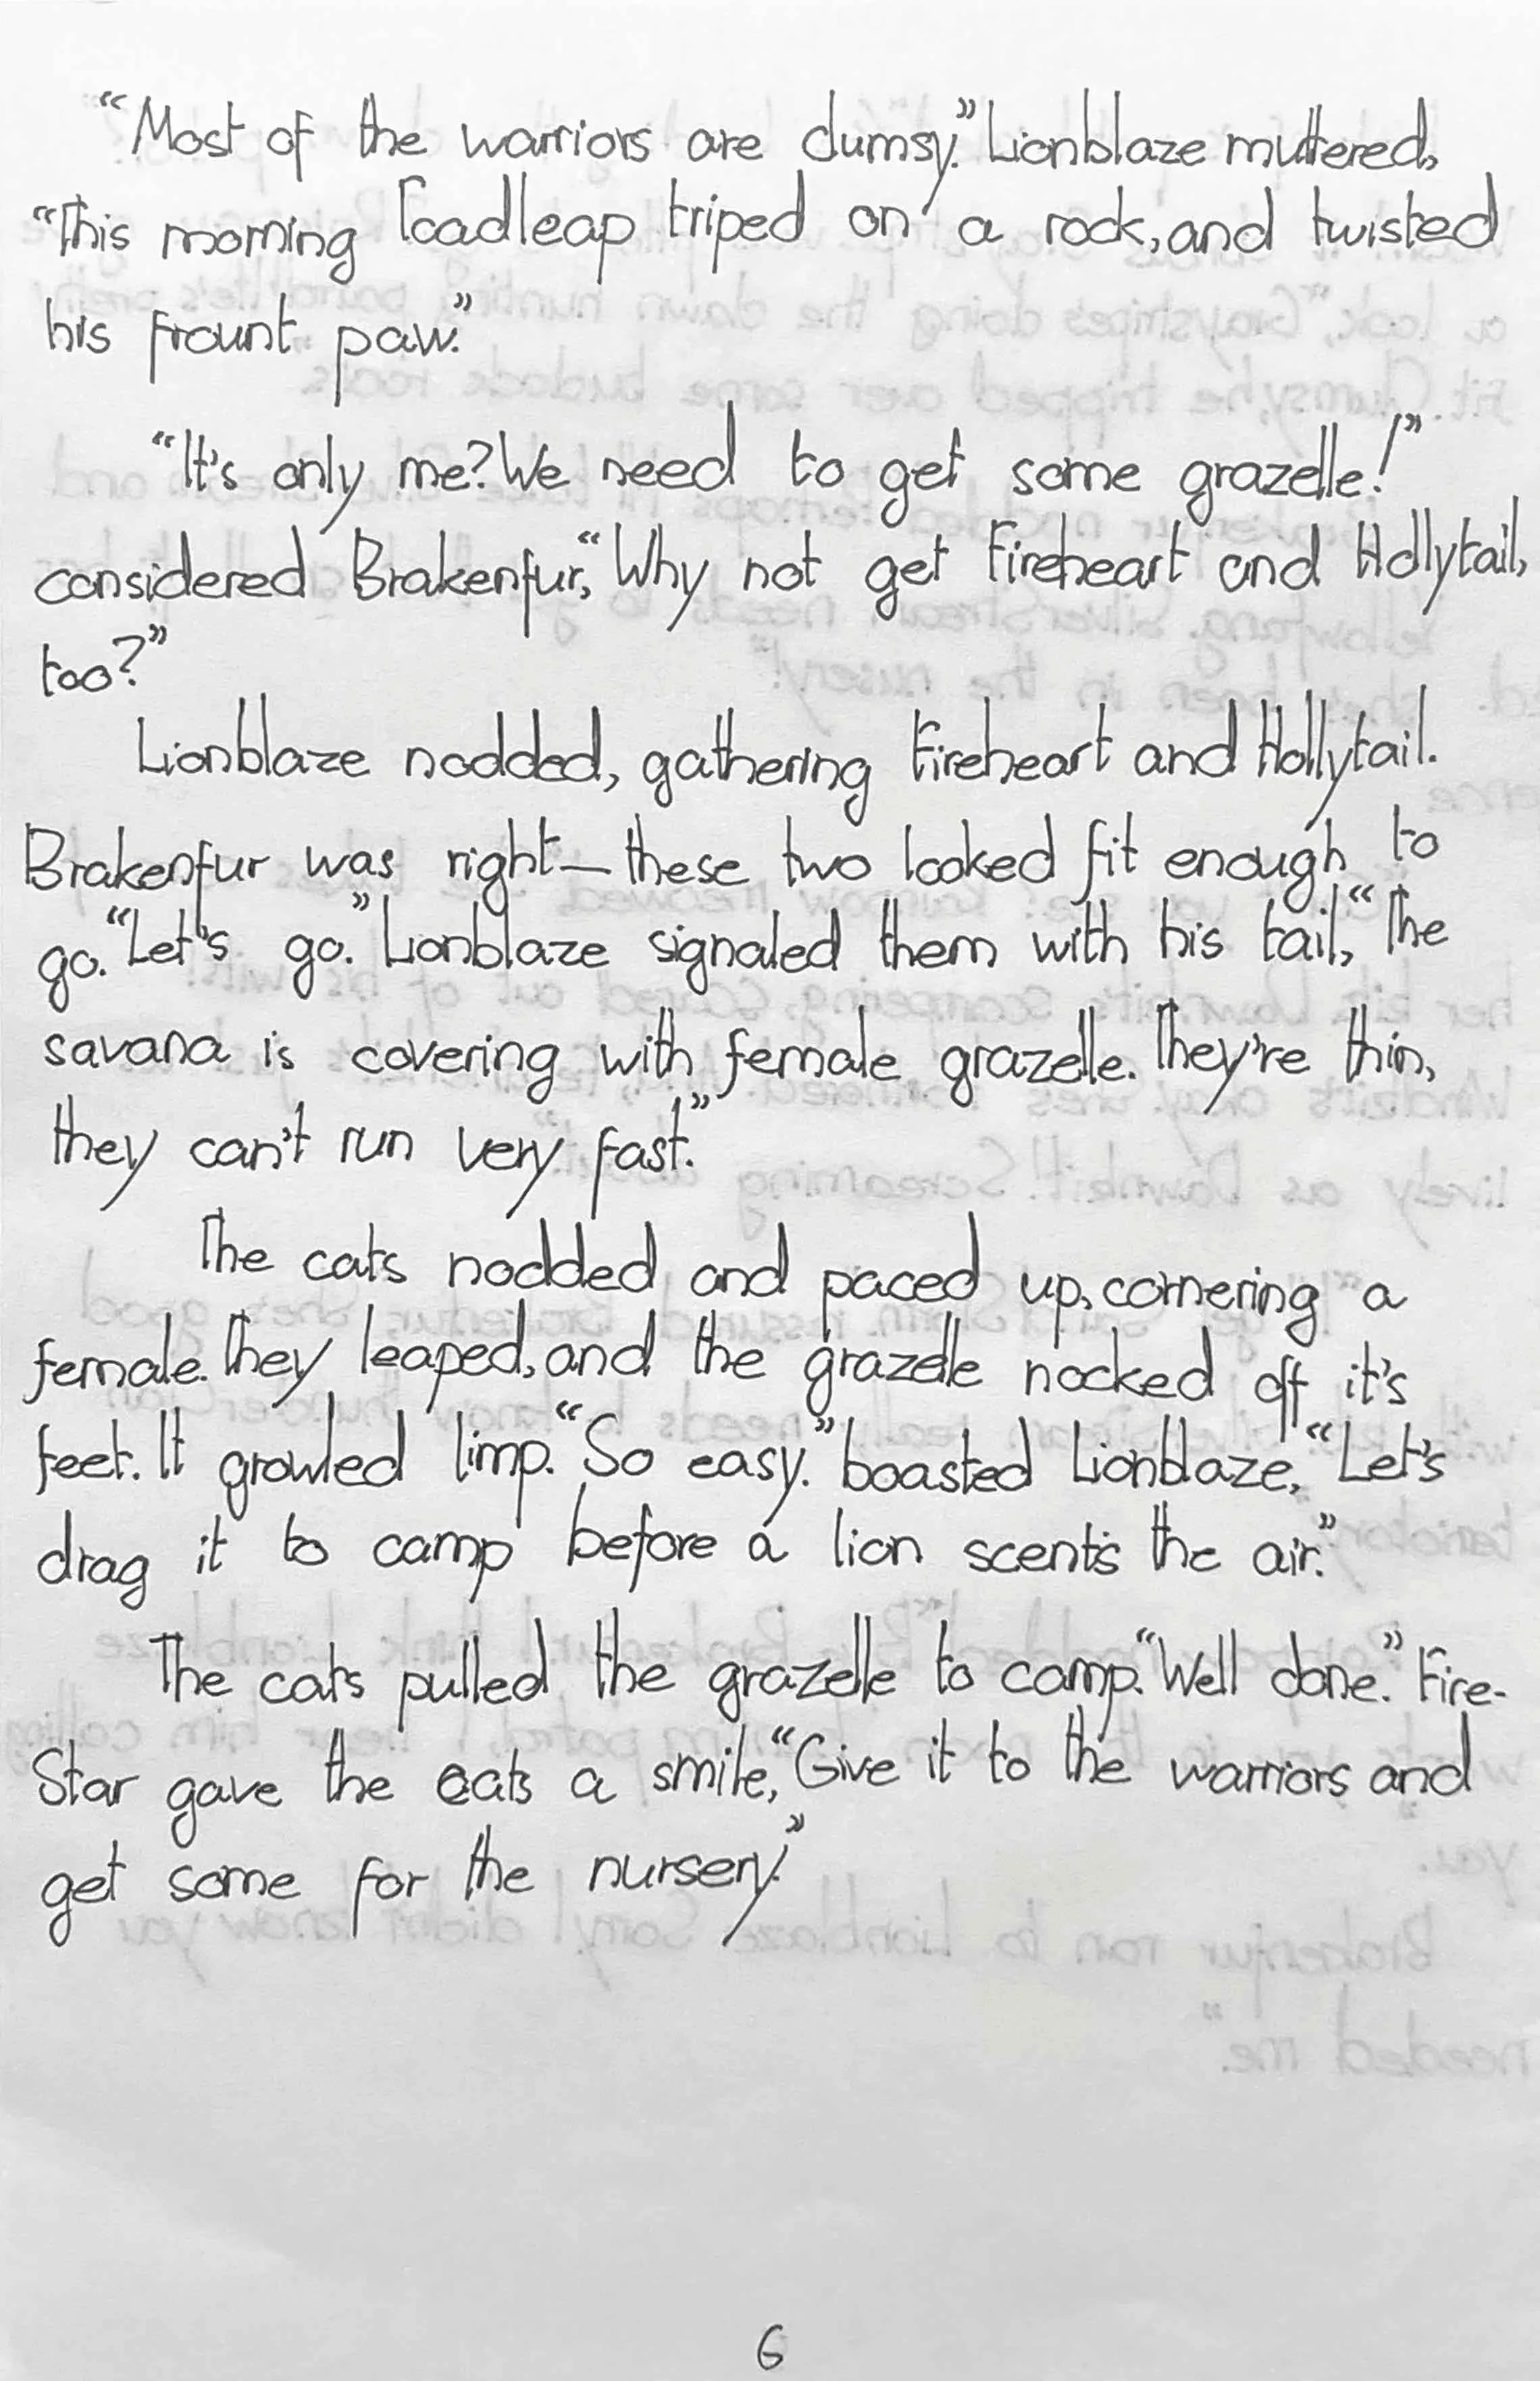 “Most of the warriors are clumsy.” Lionblaze muttered,
“This morning Toadleap triped on a rock, and twisted
his frount paw.”
“It's only me? We need to get some grazelle!”
considered Brakenfur, “Why not get Fireheart and Hollytail,
too?”
Lionblaze nodded, gathering Fireheart and Hollytail.
Brakenfur was right—these two looked fit enough to
go. “Let's go.” Lionblaze signaled them with his tail, “The
savana is covering with female grazelle. They're thin,
they can't run very fast.”
The cats nodded and paced up, cornering a
female. They leaped, and the grazelle nocked off it's
feet. It growled limp. “So easy.” boasted Lionblaze, “Let's
drag it to camp before a lion scents the air.”
The cats pulled the grazelle to camp. “Well done.” Fire-
Star gave the cats a smile, “Give it to the warriors and
get some for the nursery.”
6